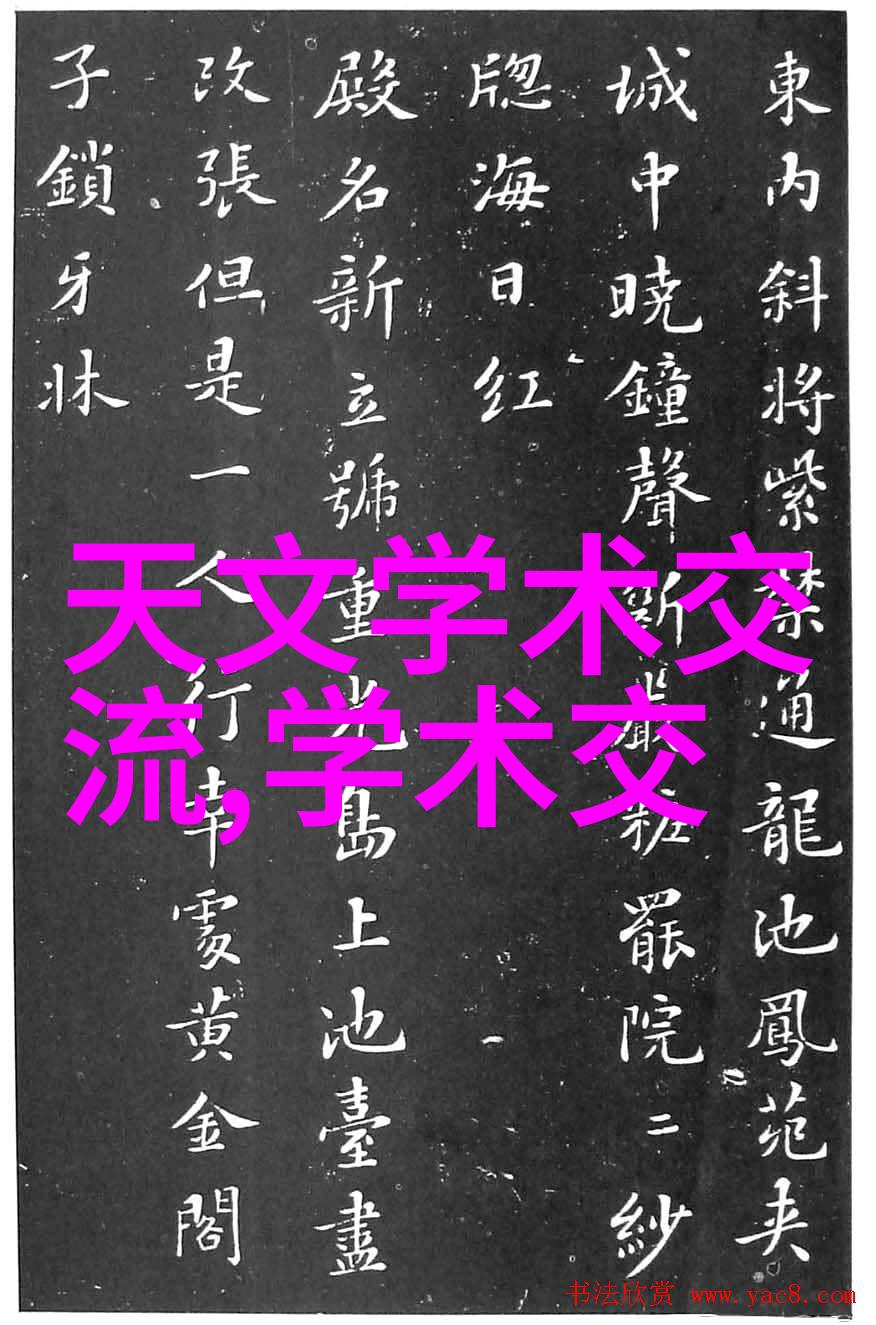 東内斜将紫禁通龍池鳳苑夾
城中曉鐘聲斷嚴粧罷院二紗
牕海日紅
殿名新立號重光島上池臺盡
改張但是一人行幸處黄金閣
子鎖牙牀
天文学术交
流,学术交
书法欣赏 www.yac8.com